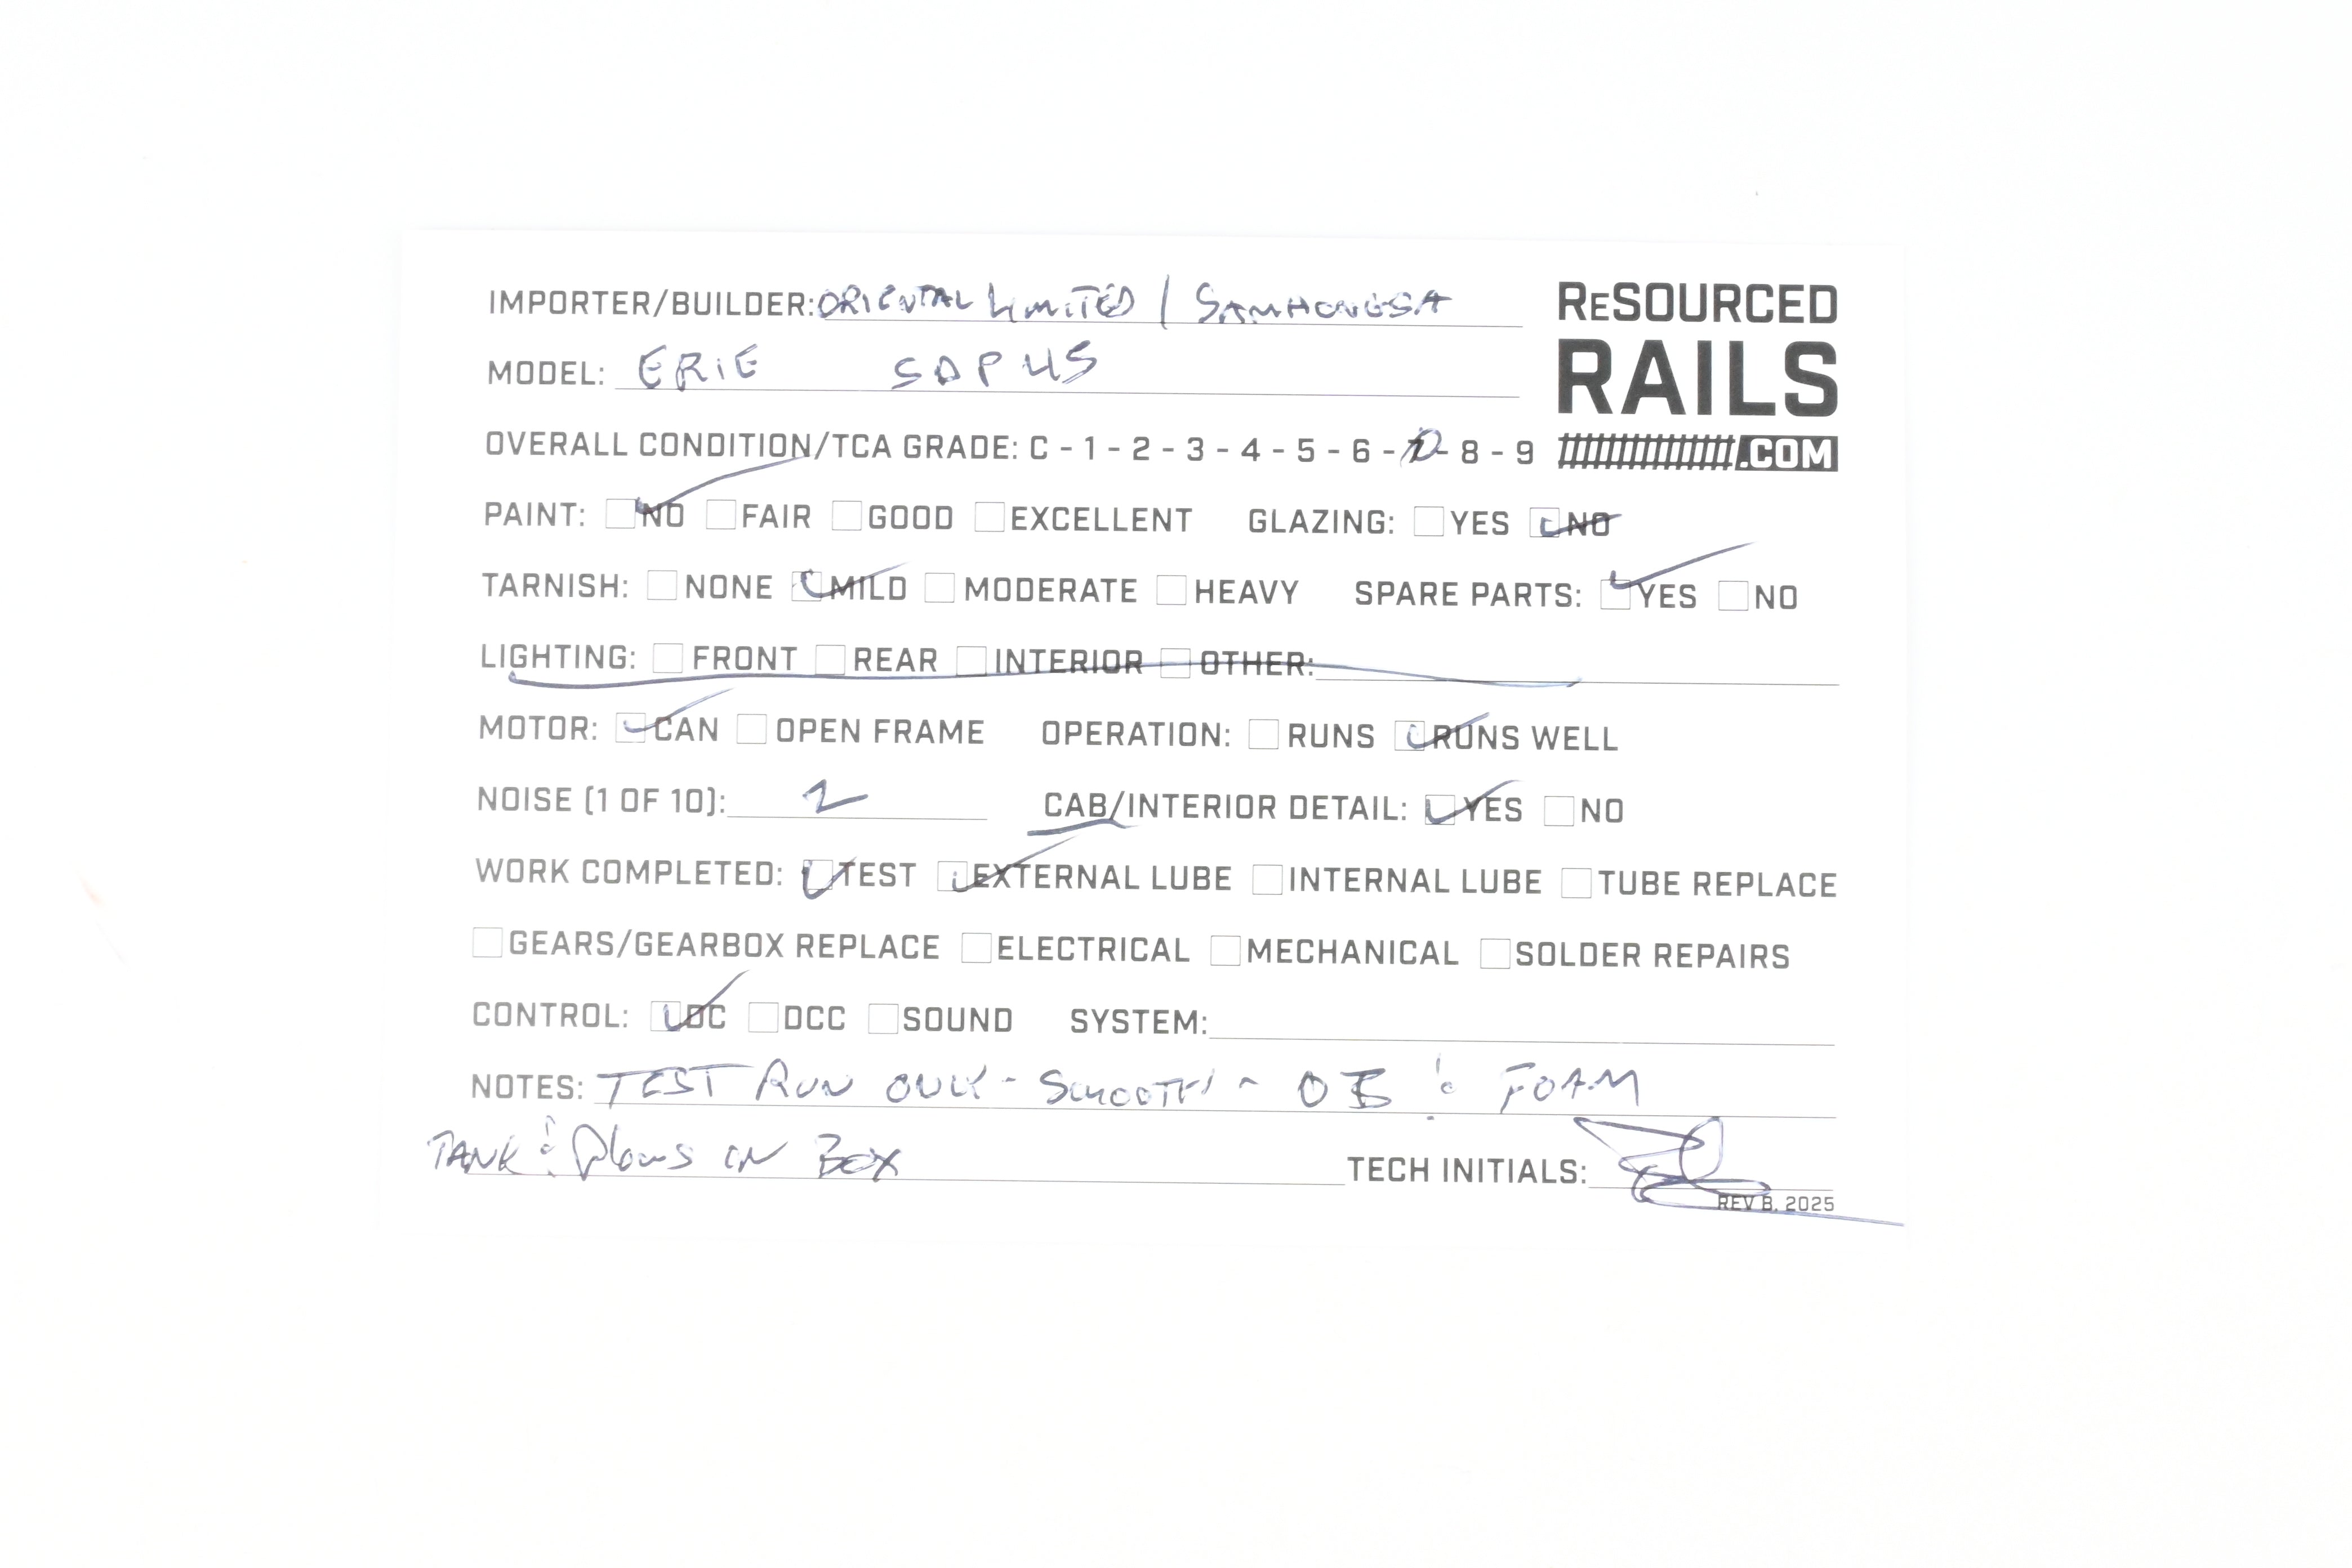 IMPORTER/BUILDER: ORIENTAL LIMITED / SAMHONGSA
RESOURCED
RAILS
.COM
MODEL: ERIE SDP45
OVERALL CONDITION/TCA GRADE: C - 1 - 2 - 3 - 4 - 5 - 6 - 7 - 8 - 9
PAINT: NO FAIR GOOD EXCELLENT GLAZING: YES NO
TARNISH: NONE MILD MODERATE HEAVY SPARE PARTS: YES NO
LIGHTING: FRONT REAR INTERIOR OTHER:
MOTOR: CAN OPEN FRAME OPERATION: RUNS RUNS WELL
NOISE (1 OF 10): 2 CAB/INTERIOR DETAIL: YES NO
WORK COMPLETED: TEST EXTERNAL LUBE INTERNAL LUBE TUBE REPLACE
GEARS/GEARBOX REPLACE ELECTRICAL MECHANICAL SOLDER REPAIRS
CONTROL: DC DCC SOUND SYSTEM:
NOTES: TEST RUN ONLY - SMOOTH - OB & FOAM
TANK & Plows IN BOX
TECH INITIALS:
REV B. 2025